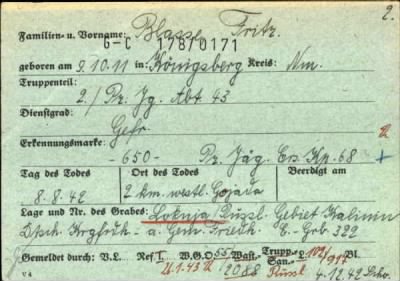 2.
Familien- u. Vorname: Blasse Fritz.
G-C 178/0171
geboren am 9.10.11 in: Königsberg Kreis: Nm.
Truppenteil:
2./ Pz. Jg. Abt. 43
Dienstgrad:
Gefr.
Erkennungsmarke:
-650- Pz. Jäg. Ers. Kp. 68 +
Tag des Todes Ort des Todes Beerdigt am
8.8.42 2 km. westl.
Lage und Nr. des Grabes: Loknja, Russl. Gebiet Kalinin
Dtsch. a. Gem. Friedh. E. Grb. 322
Gemeldet durch: V.L. Ref. I W.G.O. 55 Wast.- Trupp.- San.- L 102/917 Bl.
21.1.43 2088 Russl 4.12.42
V 4